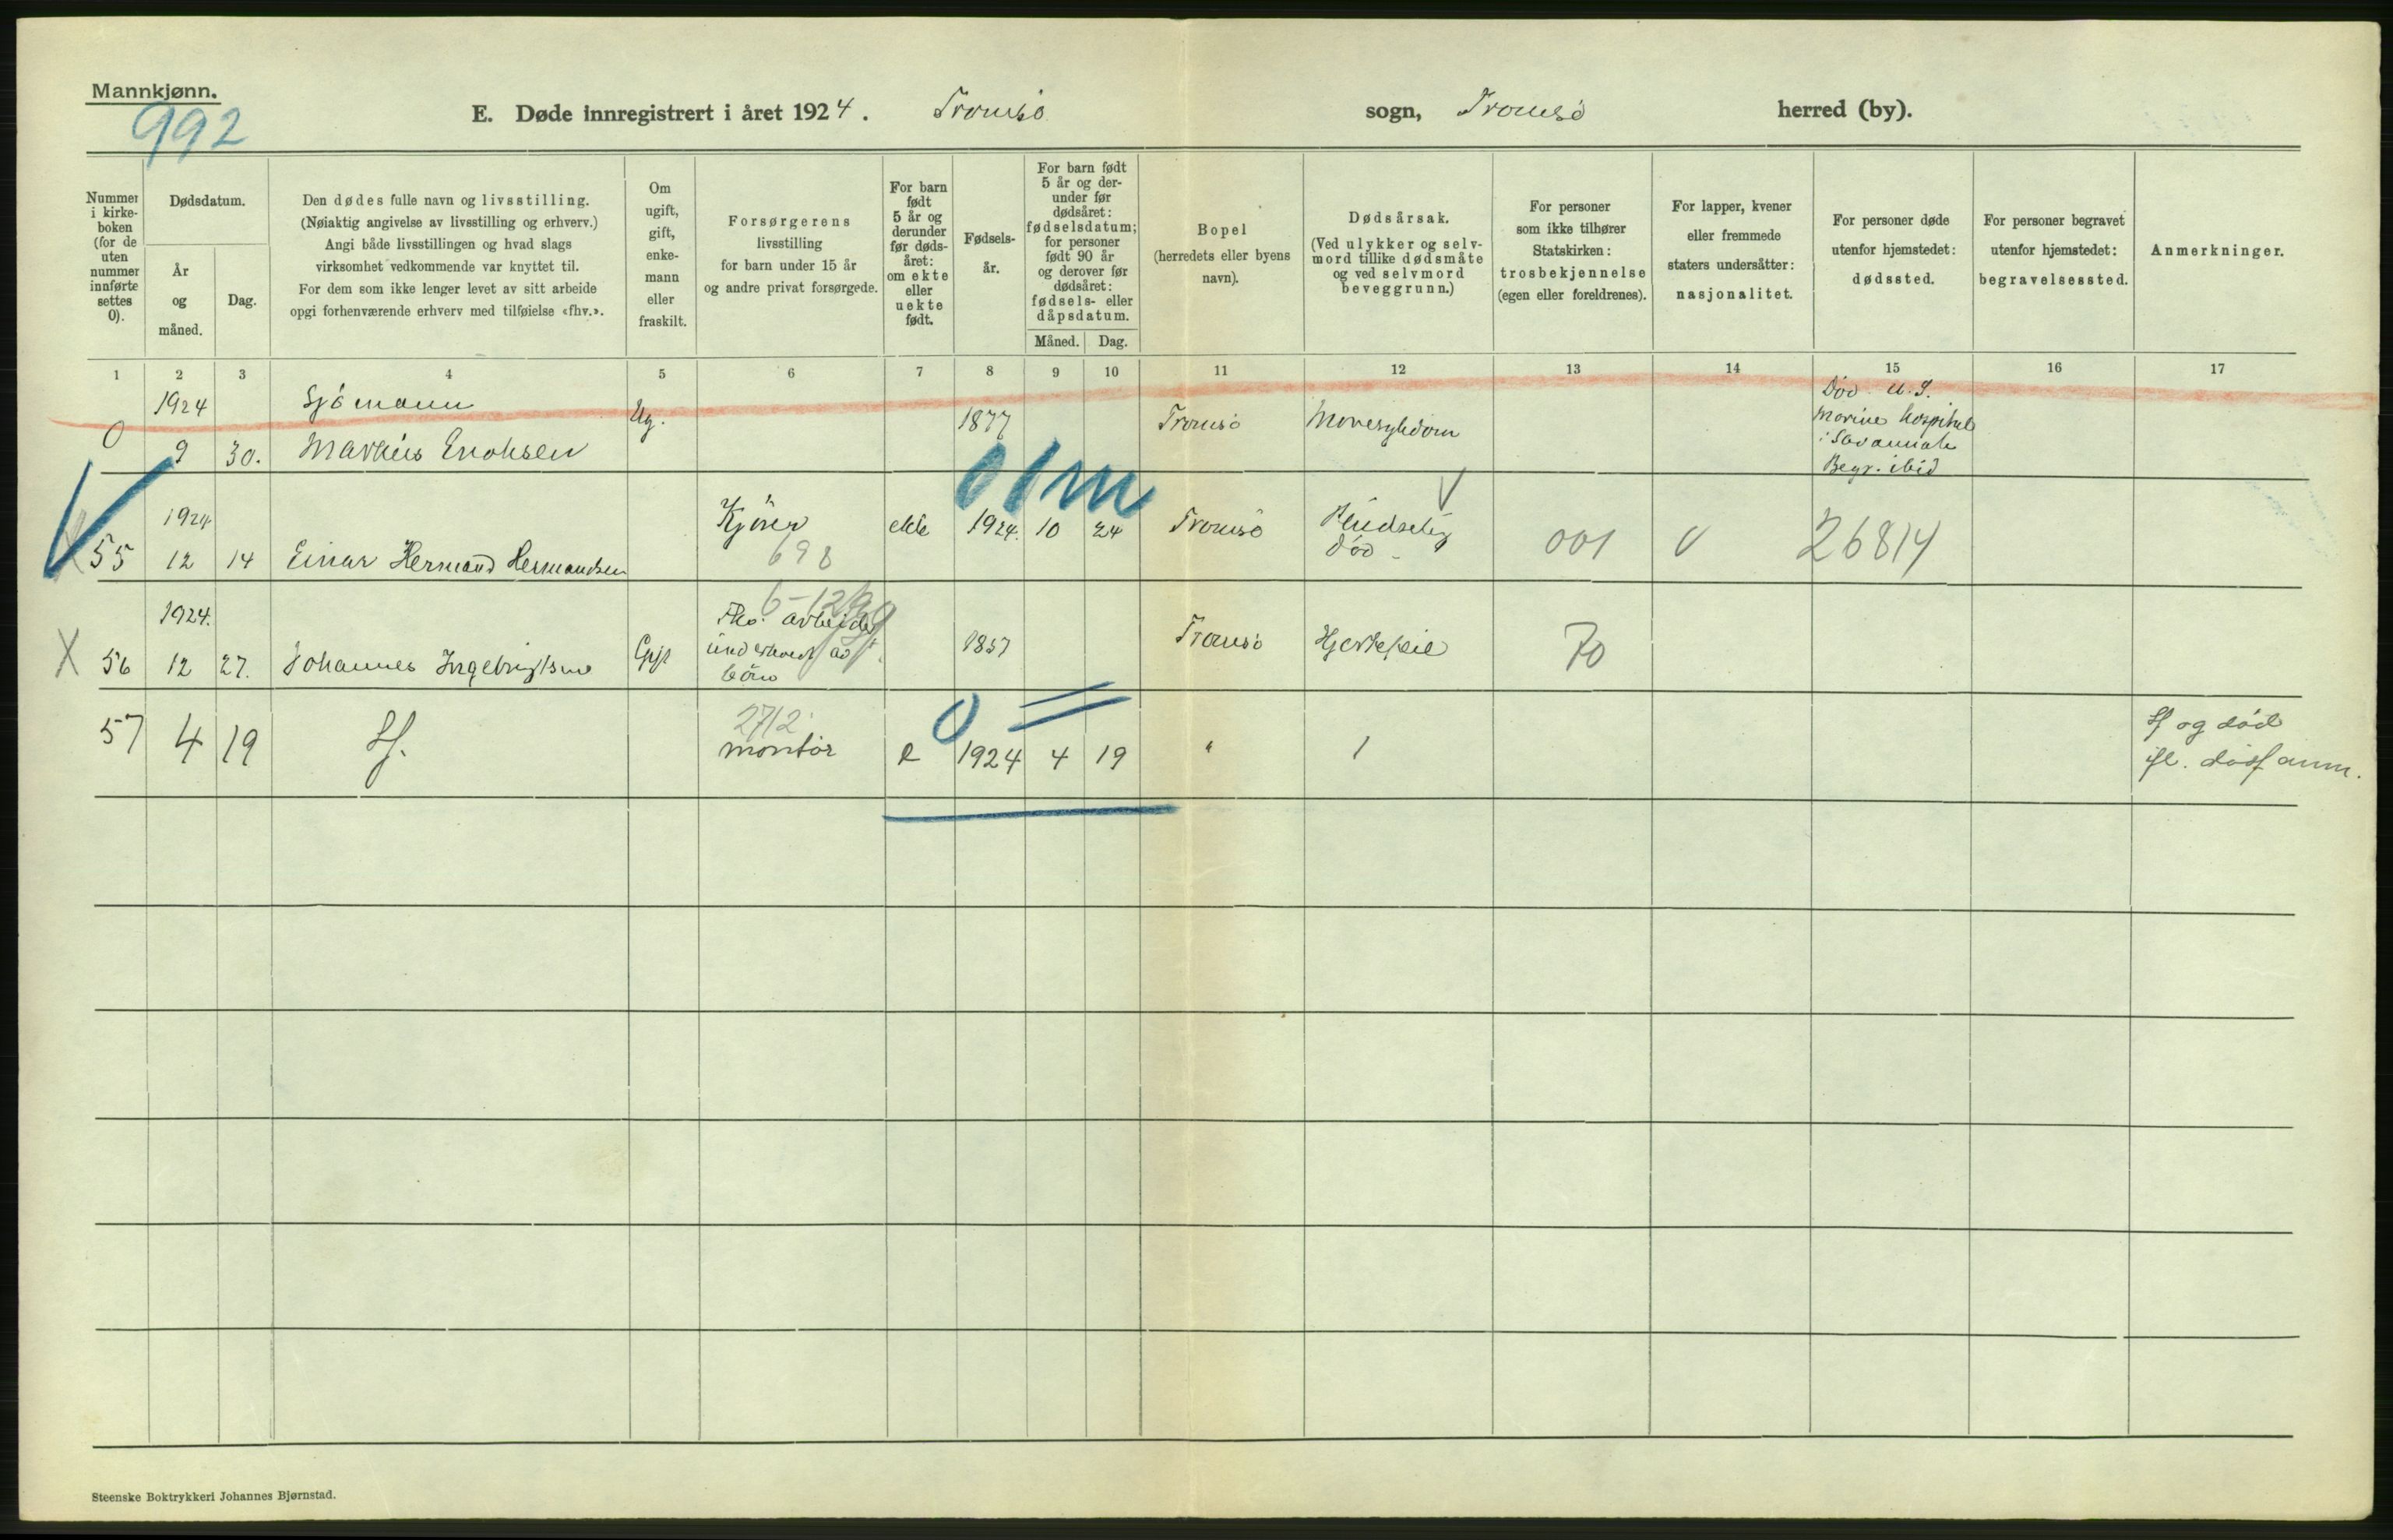 Mannkjønn.
992
E. Døde innregistrert i året 1924. Tromsö sogn, Tromsö herred (by).
Nummer i kirke-boken (for de uten nummer innførte settes 0).
Dødsdatum.
År og måned.
Dag.
Den dødes fulle navn og livsstilling.
(Nøiaktig angivelse av livsstilling og erhverv.)
Angi både livsstillingen og hvad slags
virksomhet vedkommende var knyttet til.
For dem som ikke lenger levet av sitt arbeide
opgi forhenværende erhverv med tilføielse «fhv.».
Om ugift, gift, enke-mann eller fraskilt.
Forsørgerens
livsstilling
for barn under 15 år
og andre privat forsørgede.
For barn født 5 år og derunder før døds-året: om ekte eller uekte født.
Fødsels-år.
For barn født 5 år og der-under før dødsåret: fødselsdatum; for personer født 90 år og derover før dødsåret: fødsels- eller dåpsdatum.
Måned. Dag.
Bopel
(herredets eller byens navn).
Dødsårsak.
(Ved ulykker og selv-mord tillike dødsmåte og ved selvmord beveggrunn.)
For personer som ikke tilhører Statskirken: trosbekjennelse (egen eller foreldrenes).
For lapper, kvener eller fremmede staters undersåtter: nasjonalitet.
For personer døde utenfor hjemstedet: dødssted.
For personer begravet utenfor hjemstedet: begravelsessted.
Anmerkninger.
1 2 3 4 5 6 7 8 9 10 11 12 13 14 15 16 17
0 1924 9 30. Sjömann Markus Enoksen Ug. 1877 Tromsö Mavesykdom Död U.S. Marine hospital i Savannah Begr. ibid
01m
55 1924 12 14 Einar Hermand Hermandsen Kjörer 698 ekte 1924. 10 24 Tromsö Pludselig död 001 26814
X 56 1924. 12 27. Johannes Ingebrigtsen Gift arbeider underholdt av börn 1857 Tromsö Hjertefeil 70
57 4 19 Df. 2712 montör e 0 1924 4 19 " 1 Df og död ifl. dösf anm.
Steenske Boktrykkeri Johannes Bjørnstad.